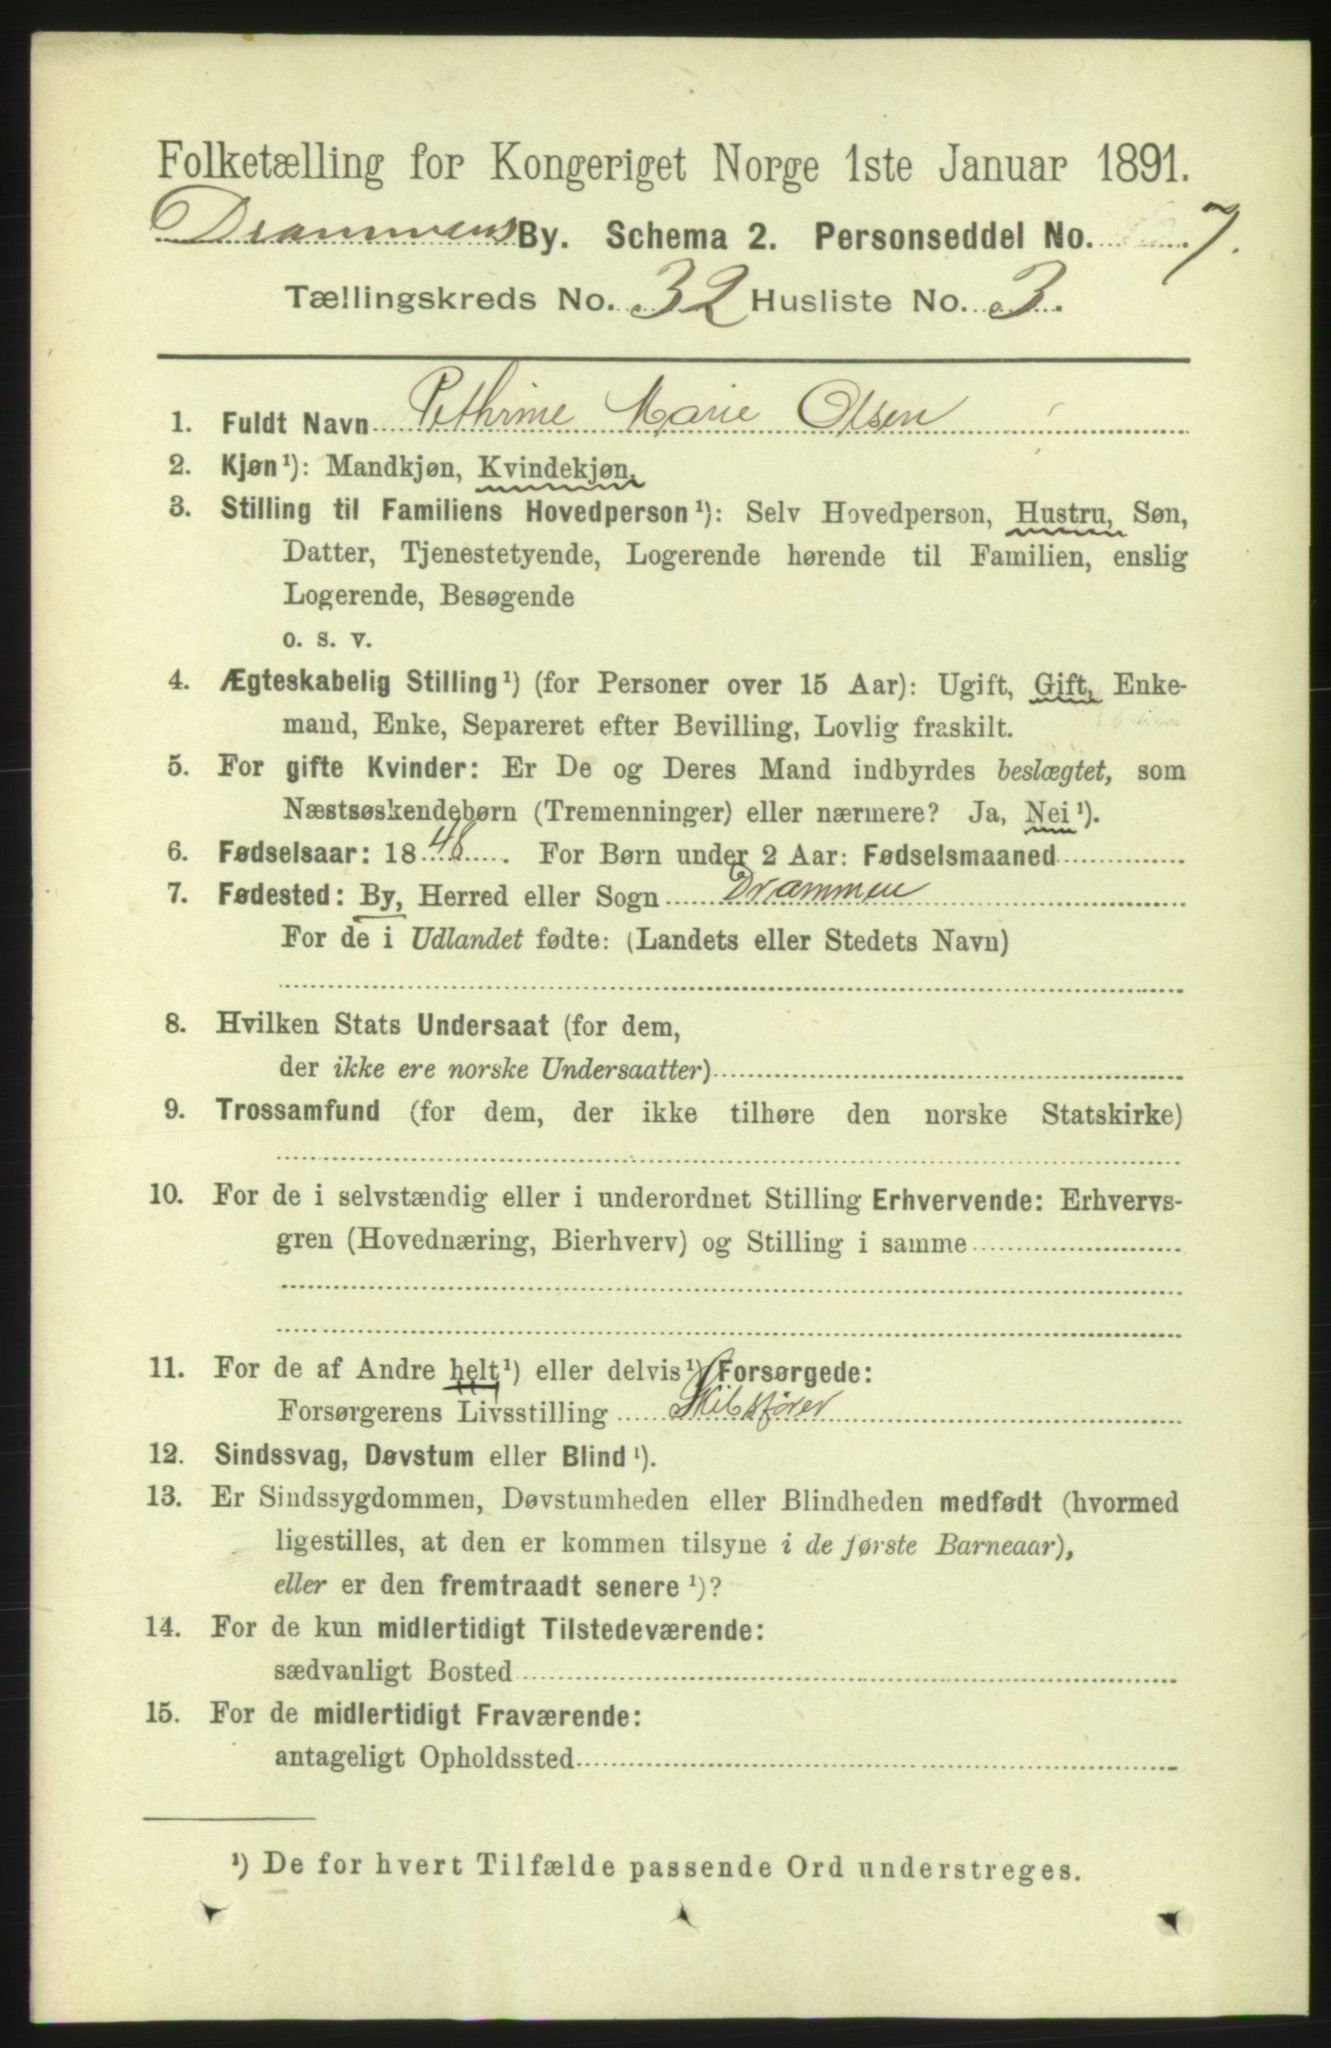 Folketælling for Kongeriget Norge 1ste Januar 1891.
Drammens By. Schema 2. Personseddel No. 7.
Tællingskreds No. 32 Husliste No. 3.
1. Fuldt Navn Pethrine Marie Olsen
2. Kjøn¹): Mandkjøn, Kvindekjøn.
3. Stilling til Familiens Hovedperson¹): Selv Hovedperson, Hustru, Søn,
Datter, Tjenestetyende, Logerende hørende til Familien, enslig
Logerende, Besøgende
o. s. v.
4. Ægteskabelig Stilling¹) (for Personer over 15 Aar): Ugift, Gift, Enke-
mand, Enke, Separeret efter Bevilling, Lovlig fraskilt.
5. For gifte Kvinder: Er De og Deres Mand indbyrdes beslægtet, som
Næstsøskendebørn (Tremenninger) eller nærmere? Ja, Nei¹).
6. Fødselsaar: 1848. For Børn under 2 Aar: Fødselsmaaned
7. Fødested: By, Herred eller Sogn Drammen
For de i Udlandet fødte: (Landets eller Stedets Navn)
8. Hvilken Stats Undersaat (for dem,
der ikke ere norske Undersaatter)
9. Trossamfund (for dem, der ikke tilhøre den norske Statskirke)
10. For de i selvstændig eller i underordnet Stilling Erhvervende: Erhvervs-
gren (Hovednæring, Bierhverv) og Stilling i samme
11. For de af Andre helt¹) eller delvis¹) Forsørgede:
Forsørgerens Livsstilling Skibsfører
12. Sindssvag, Døvstum eller Blind¹).
13. Er Sindssygdommen, Døvstumheden eller Blindheden medfødt (hvormed
ligestilles, at den er kommen tilsyne i de første Barneaar),
eller er den fremtraadt senere¹)?
14. For de kun midlertidigt Tilstedeværende:
sædvanligt Bosted
15. For de midlertidigt Fraværende:
antageligt Opholdssted
¹) De for hvert Tilfælde passende Ord understreges.